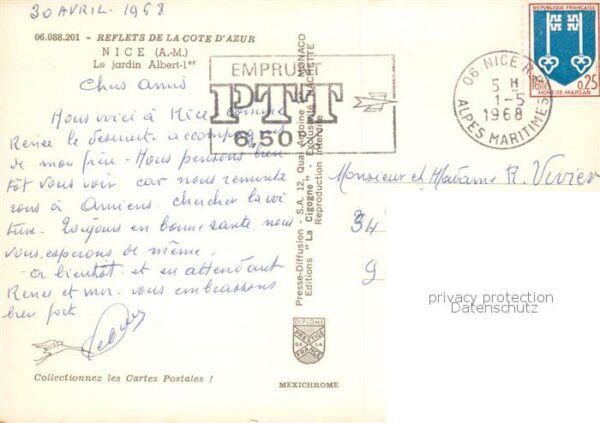 30 AVRIL - 1968
06.088.201 - REFLETS DE LA COTE D'AZUR
NICE (A.-M.)
Le jardin Albert-1er
Chers Amis
Nous voici à Nice comme
Renée le désirait accompagnés
de mon frère - Nous pensons bien
tôt vous voir car nous remonte
rons à Amiens chercher la voi
ture. Toujours en bonne santé, nous
vous espérons de même.
à bientôt et en attendant
Renée et moi vous embrassons
bien fort
Collectionnez les Cartes Postales !
EMPRUNT
PTT
6,50
Presse-Diffusion - S.A. 12, Quai Antoine MONACO
Editions "La Cigogne" - Exclusivité HACHETTE
Reproduction interdite
DIPLOME
PRESTIGE
DE LA
FRANCE
MEXICHROME
06 NICE R.P.
5 H
1-5
1968
ALPES MARITIMES
REPUBLIQUE FRANÇAISE
Postes
0,25
MONT-DE-MARSAN
Monsieur et Madame R. Vivier
34
9
privacy protection
Datenschutz